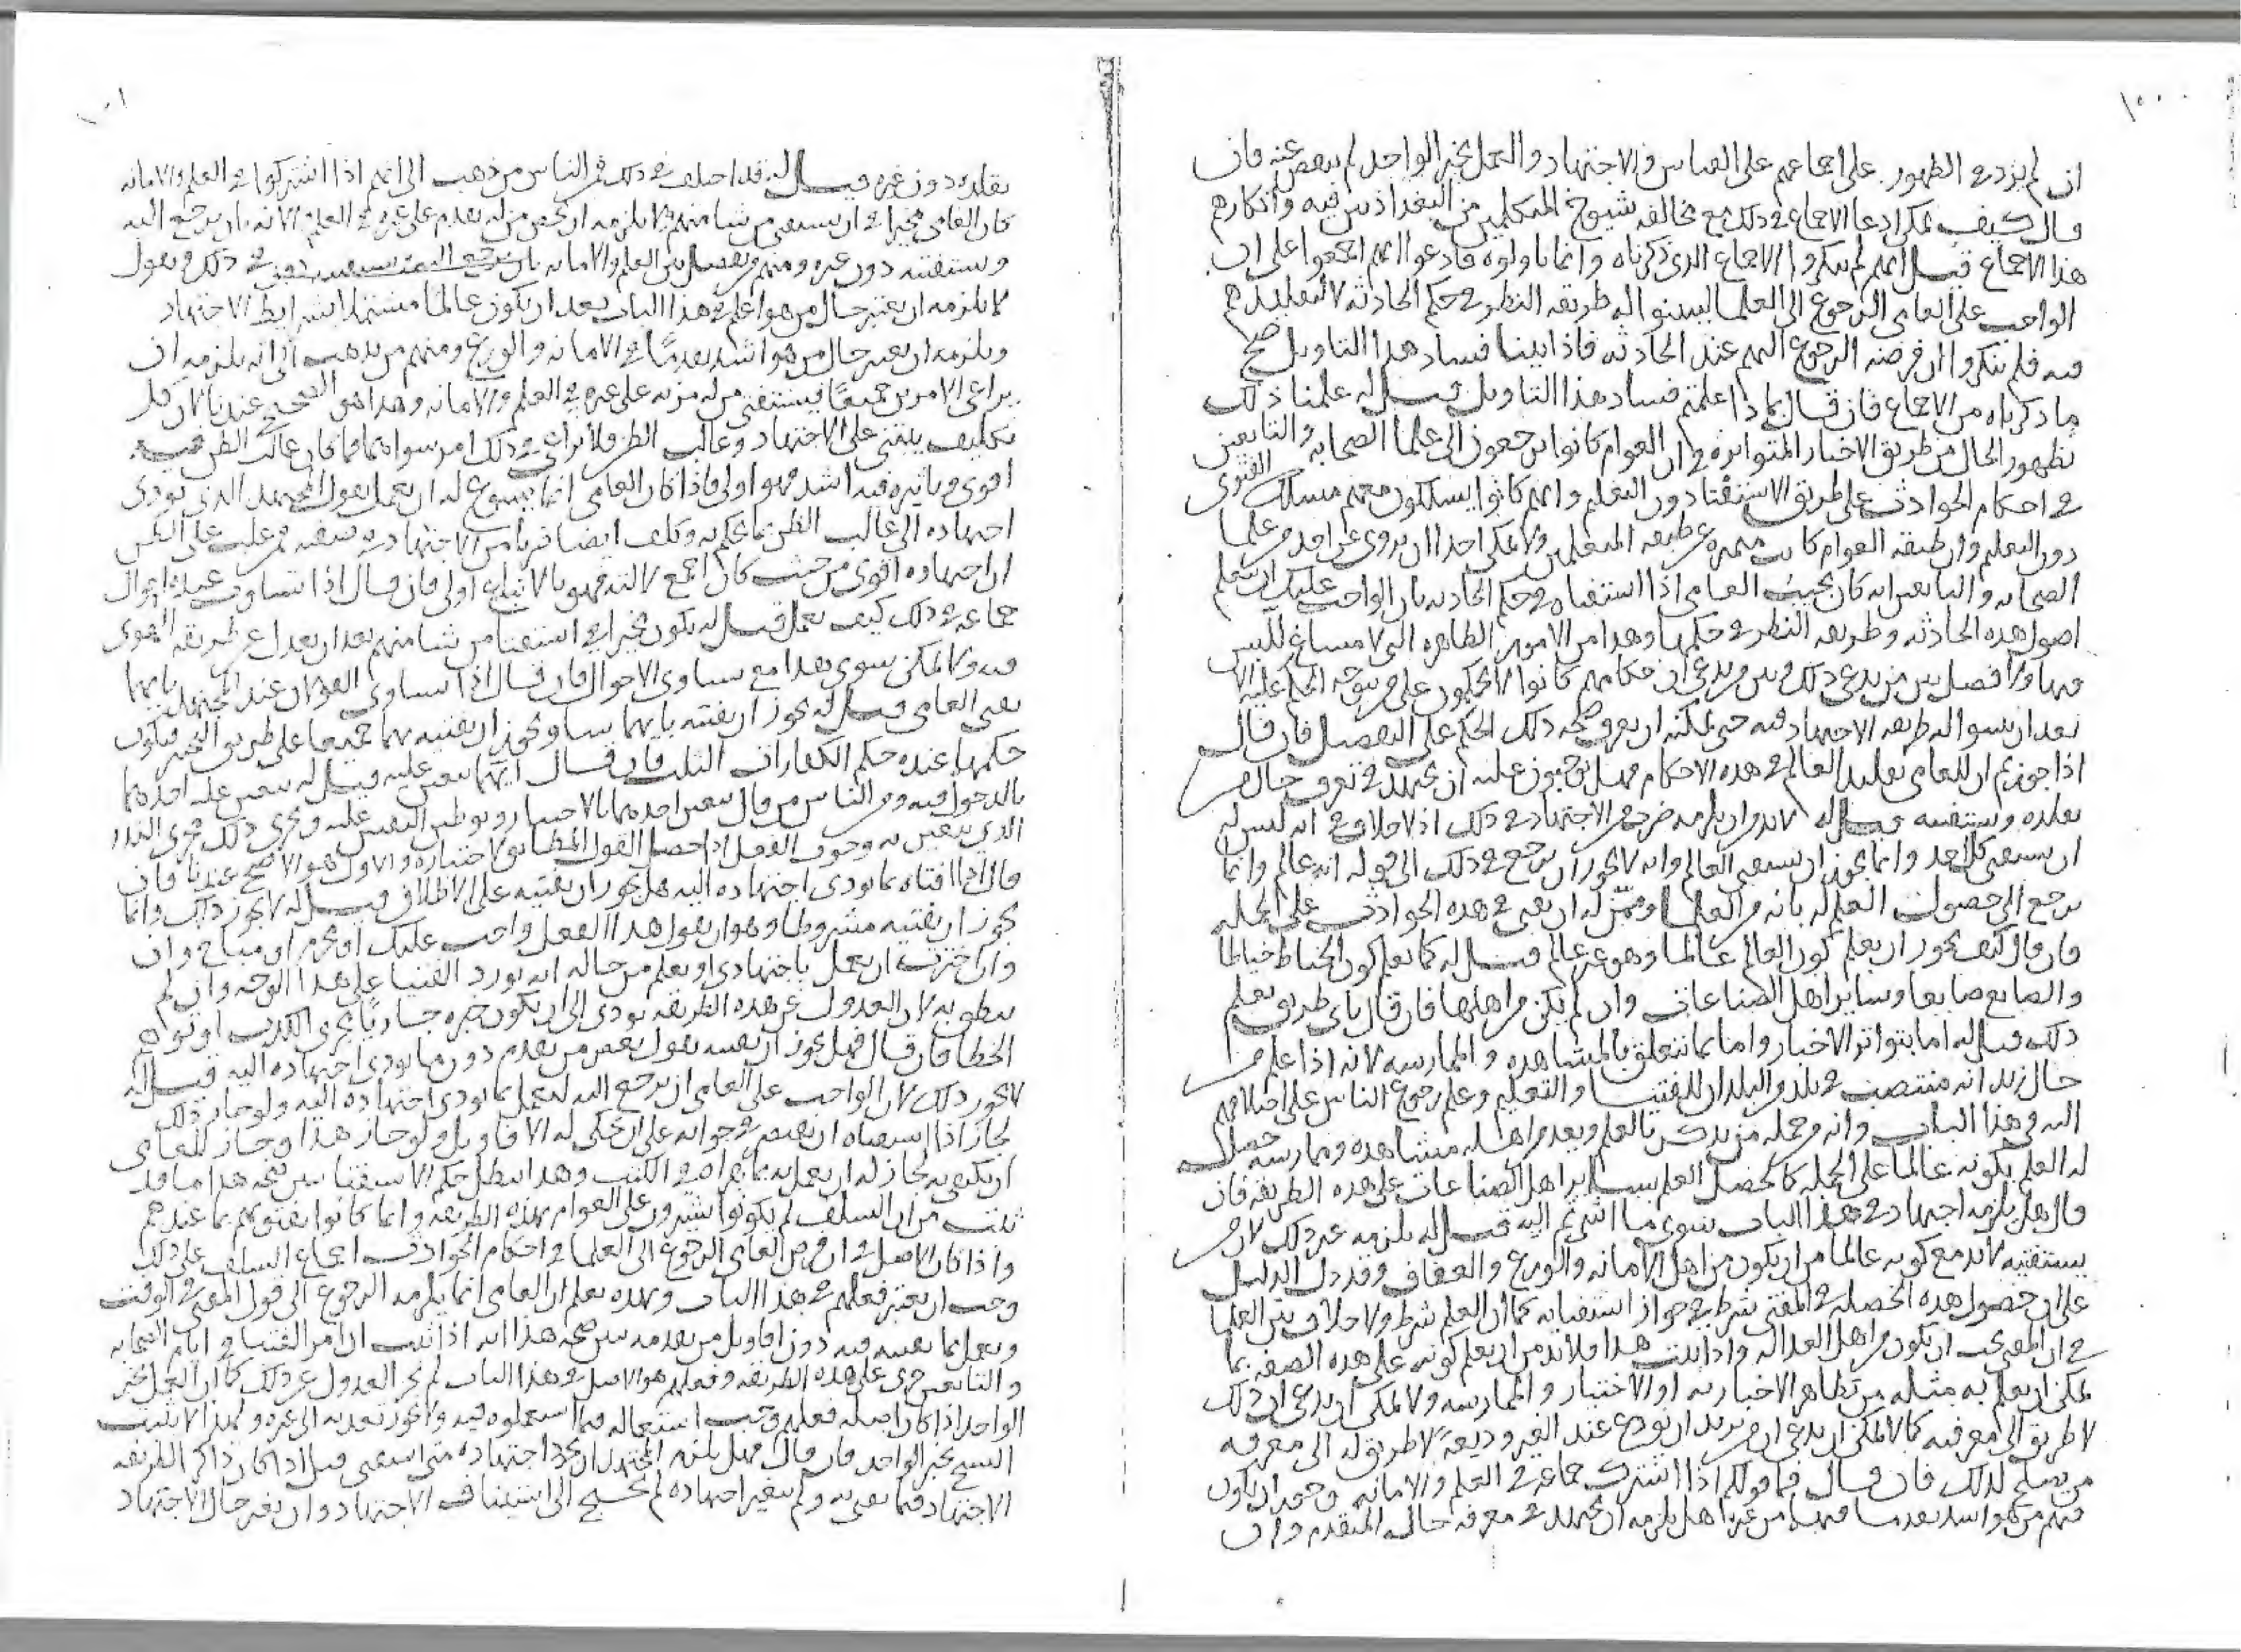 ١٠٠
ان لم يزد في الظهور على اجماعهم على القياس والاجتهاد والعمل بخبر الواحد لم ينقص عنه فان
قال كيف يمكن ادعا الاجماع في ذلك مع مخالفه شيوخ المتكلمين من البغداذيين فيه وانكارهم
هذا الاجماع قيل انهم لم ينكروا الاجماع الذي ذكرناه وانما تاولوه فادعوا انهم اجمعوا على ان
الواجب على العامي الرجوع الى العلما ليبينوا له طريقه النظر في حكم الحادثه لا لتقليدهم
فيه فلم ينكروا ان فرضه الرجوع اليهم عند الحادثه فاذا بينا فساد هذا التاويل صح
ما ذكرناه من الاجماع فان قال بماذا علمتم فساد هذا التاويل قيل له علمنا ذلك
بظهور الحال من طريق الاخبار المتواتره في ان العوام كانوا يرجعون الى علما الصحابه والتابعين
في احكام الحوادث على طريق الاستفتا دون التعلم وانهم كانوا يسلكون معهم مسلك الفتوى
دون التعلم وان طبقه العوام كانت متميزه عن طبقه المتعلمين ولا يمكن احدا ان يروي عن احد من علما
الصحابه والتابعين انه كان يجيب العامي اذا استفتاه في حكم الحادثه بان الواجب عليك ان تتعلم
اصول هذه الحادثه وطريقه النظر في حكمها وهذا من الامور الظاهره التي لا مساغ للبس
فيها ولا فصل بين من يدعي ذلك وبين من يدعي ان حكامهم كانوا لا يحكمون على من يتوجه الحكم عليه الا
بعد ان يبينوا له طريقه الاجتهاد فيه حتى يمكنه ان يعرف صحه ذلك الحكم على التفصيل فان قال
اذا جوزتم ان للعامي تقليد العالم في هذه الاحكام فهل توجبون عليه ان يجتهد في تعرف حال من
يقلده ويستفتيه قيل له لا بد وان يلزمه ضرب من الاجتهاد في ذلك اذ لا خلاف في انه ليس له
ان يستفتي كل احد وانما يجوز ان يستفتي العالم وانه لا يجوز ان يرجع في ذلك الى قوله انه عالم وانما
يرجع الى حصول العلم له بانه من العلما وممن له ان يفتي في هذه الحوادث على الجمله
فان قال كيف يجوز ان يعلم كون العالم عالما وهو غير عالم قيل له كما يعلم كون الخياط خياطا
والصايغ صايغا وساير اهل الصناعات وان لم يكن من اهلها فان قال باي طريق يعلم
ذلك قيل له اما بتواتر الاخبار واما بما يتعلق بالمشاهده والممارسه لانه اذا علم من
حال زيد انه منتصب في بلد من البلدان للفتيا والتعليم وعلم رجوع الناس على اختلافهم
اليه في هذا الباب وانه من جمله من يذكر بالعلم ويعد من اهله مشاهده وممارسه حصل
له العلم بكونه عالما على الجمله كما يحصل العلم بساير اهل الصناعات على هذه الطريقه فان
قال هل يلزمه اجتهاد في هذا الباب سوى ما اشرتم اليه قيل له يلزمه غير ذلك لان من
يستفتيه لا بد مع كونه عالما من ان يكون من اهل الامانه والورع والعفاف وقد دل الدليل
على ان حصول هذه الخصله في المفتي شرط في جواز استفتايه كما ان العلم شرط ولا خلاف بين العلما
في ان المفتي يجب ان يكون من اهل العداله واذا ثبت هذا فلا بد من ان يعلم كونه على هذه الصفه بما
يمكن ان يعلم به مثله من تظاهر الاخبار به او الاختبار والممارسه ولا يمكن ان يدعى ان ذلك
لا طريق الى معرفته كما لا يمكن ان يدعى ان من يريد ان يودع عند الغير وديعه لا طريق له الى معرفه
من يصلح لذلك فان قال فما قولكم اذا اشترك جماعه في العلم والامانه
فيهم من هو اشد تقدما فيهما من غيره هل يلزمه ان يجتهد في معرفه حال المتقدم وان
١٠١
يقلده دون غيره قيل له قد اختلف في ذلك فمن الناس من ذهب الى انهم اذا اشتركوا في العلم والامانه
كان العامي مخيرا في ان يستفتي من شا منهم ولا يلزمه ان يخص من له تقدم على غيره في العلم والامانه بان يرجع اليه
ويستفتيه دون غيره ومنهم من يفصل بين العلم والامانه في ذلك ويقول
لا يلزمه ان يعتبر حال من هو اعلم في هذا الباب بعد ان يكون عالما مشتملا بشرايط الاجتهاد
ويلزمه ان يعتبر حال من هو اشد تقدما في الامانه والورع ومنهم من يذهب الى انه يلزمه ان
يراعي الامرين جميعا فيستفتي من له مزيه على غيره في العلم والامانه وهذا هو الصحيح عندنا لان كل
تكليف يبتنى على الاجتهاد وغالب الظن ولا يراعى في ذلك امر سواهما فما كان غالب الظن فيه
اقوى وتاثيره فيه اشد فهو اولى فاذا كان العامي انما يسوغ له ان يعمل بقول المجتهد الذي يودي
اجتهاده الى غالب الظن بما يحكم به وكلف ايضا ضربا من الاجتهاد في نفسه فمن غلب على الظن
ان اجتهاده اقوى من حيث كان اجمع لالته فهو بالاتباع اولى فان قال اذا تساوت عنده احوال
جماعه في ذلك كيف يعمل قيل له يكون مخيرا في استفتا من شا منهم بعد ان يعدل عن طريقه الهوى
فيه ولا يمكن سوى هذا مع تساوي الاحوال فان قال اذا تساوى القولان عند المجتهد بايهما
يفتي العامي قيل له يجوز ان يفتيه بايهما شا ويجوز ان يفتيه بهما جميعا على طريق التخيير فيكون
حكمهما عنده حكم الكفارات الثلث فان قال ايهما يتعين عليه قيل له يتعين عليه احدهما
بالدخول فيه ومن الناس من قال يتعين احدهما بالاختيار وتوطين النفس عليه ويجري ذلك مجرى النذر
الذي يتعين به وجوب الفعل اذا حصل القول المطابق لاختياره والاول هو الاصح عندنا فان
قال اذا افتاه بما يودي اجتهاده اليه هل يجوز ان يفتيه على الاطلاق قيل له لا يجوز ذلك وانما
يجوز ان يفتيه مشروطا وهو ان يقول هذا الفعل واجب عليك او محرم او مباح وان
وان اخترت ان تعمل باجتهادي او يعلم من حاله انه يورد الفتيا على هذا الوجه وان لم
ينطق به لان العدول عن هذه الطريقه يودي الى ان يكون خبره جاريا مجرى الكذب او نواه
الخطا فان قال فهل يجوز ان يفتيه بقول بعض من تقدم دون ما يودي اجتهاده اليه قيل له
لا يجوز ذلك لان الواجب على العامي ان يرجع اليه ليعمل بما يودي اجتهاده اليه ولو جاز ذلك
لجاز اذا استفتاه ان يقتصر في جوابه على ان يحكي له الاقاويل ولو جاز هذا وجاز للعامي
ان يكتفي به لجاز له ان يعمل به بما يقراه في الكتب وهذا يبطل حكم الاستفتا يبين صحه هذا ما قد
ثبت من ان السلف لم يكونوا يشيرون على العوام بهذه الطريقه وانما كانوا يفتونهم بما عندهم
واذا كان الاصل في ان فرض العامي الرجوع الى العلما في احكام الحوادث اجماع السلف على ذلك
وجب ان يعتبر فعلهم في هذا الباب وبهذه يعلم ان العامي انما يلزمه الرجوع الى قول المفتي في الوقت
ويعمل بما يفتيه فيه دون اقاويل من تقدمه يبين صحه هذا انه اذا ثبت ان امر الفتيا في ايام الصحابه
والتابعين جرى على هذه الطريقه وفعلهم هو الاصل في هذا الباب لم يجز العدول عن ذلك كما ان العمل بخبر
الواحد اذا كان اصله فعلهم وجب استعماله فيما استعملوه فيه ولا يجوز تعديه الى غيره ولهذا لا يثبت
النسخ بخبر الواحد فان قال فهل يلزم المجتهد ان يجدد اجتهاده متى استفتي قيل اذا كان ذاكرا لطريقه
الاجتهاد فيما يفتي به ولم يتغير اجتهاده لم يحتج الى استيناف الاجتهاد وان تغير حال الاجتهاد